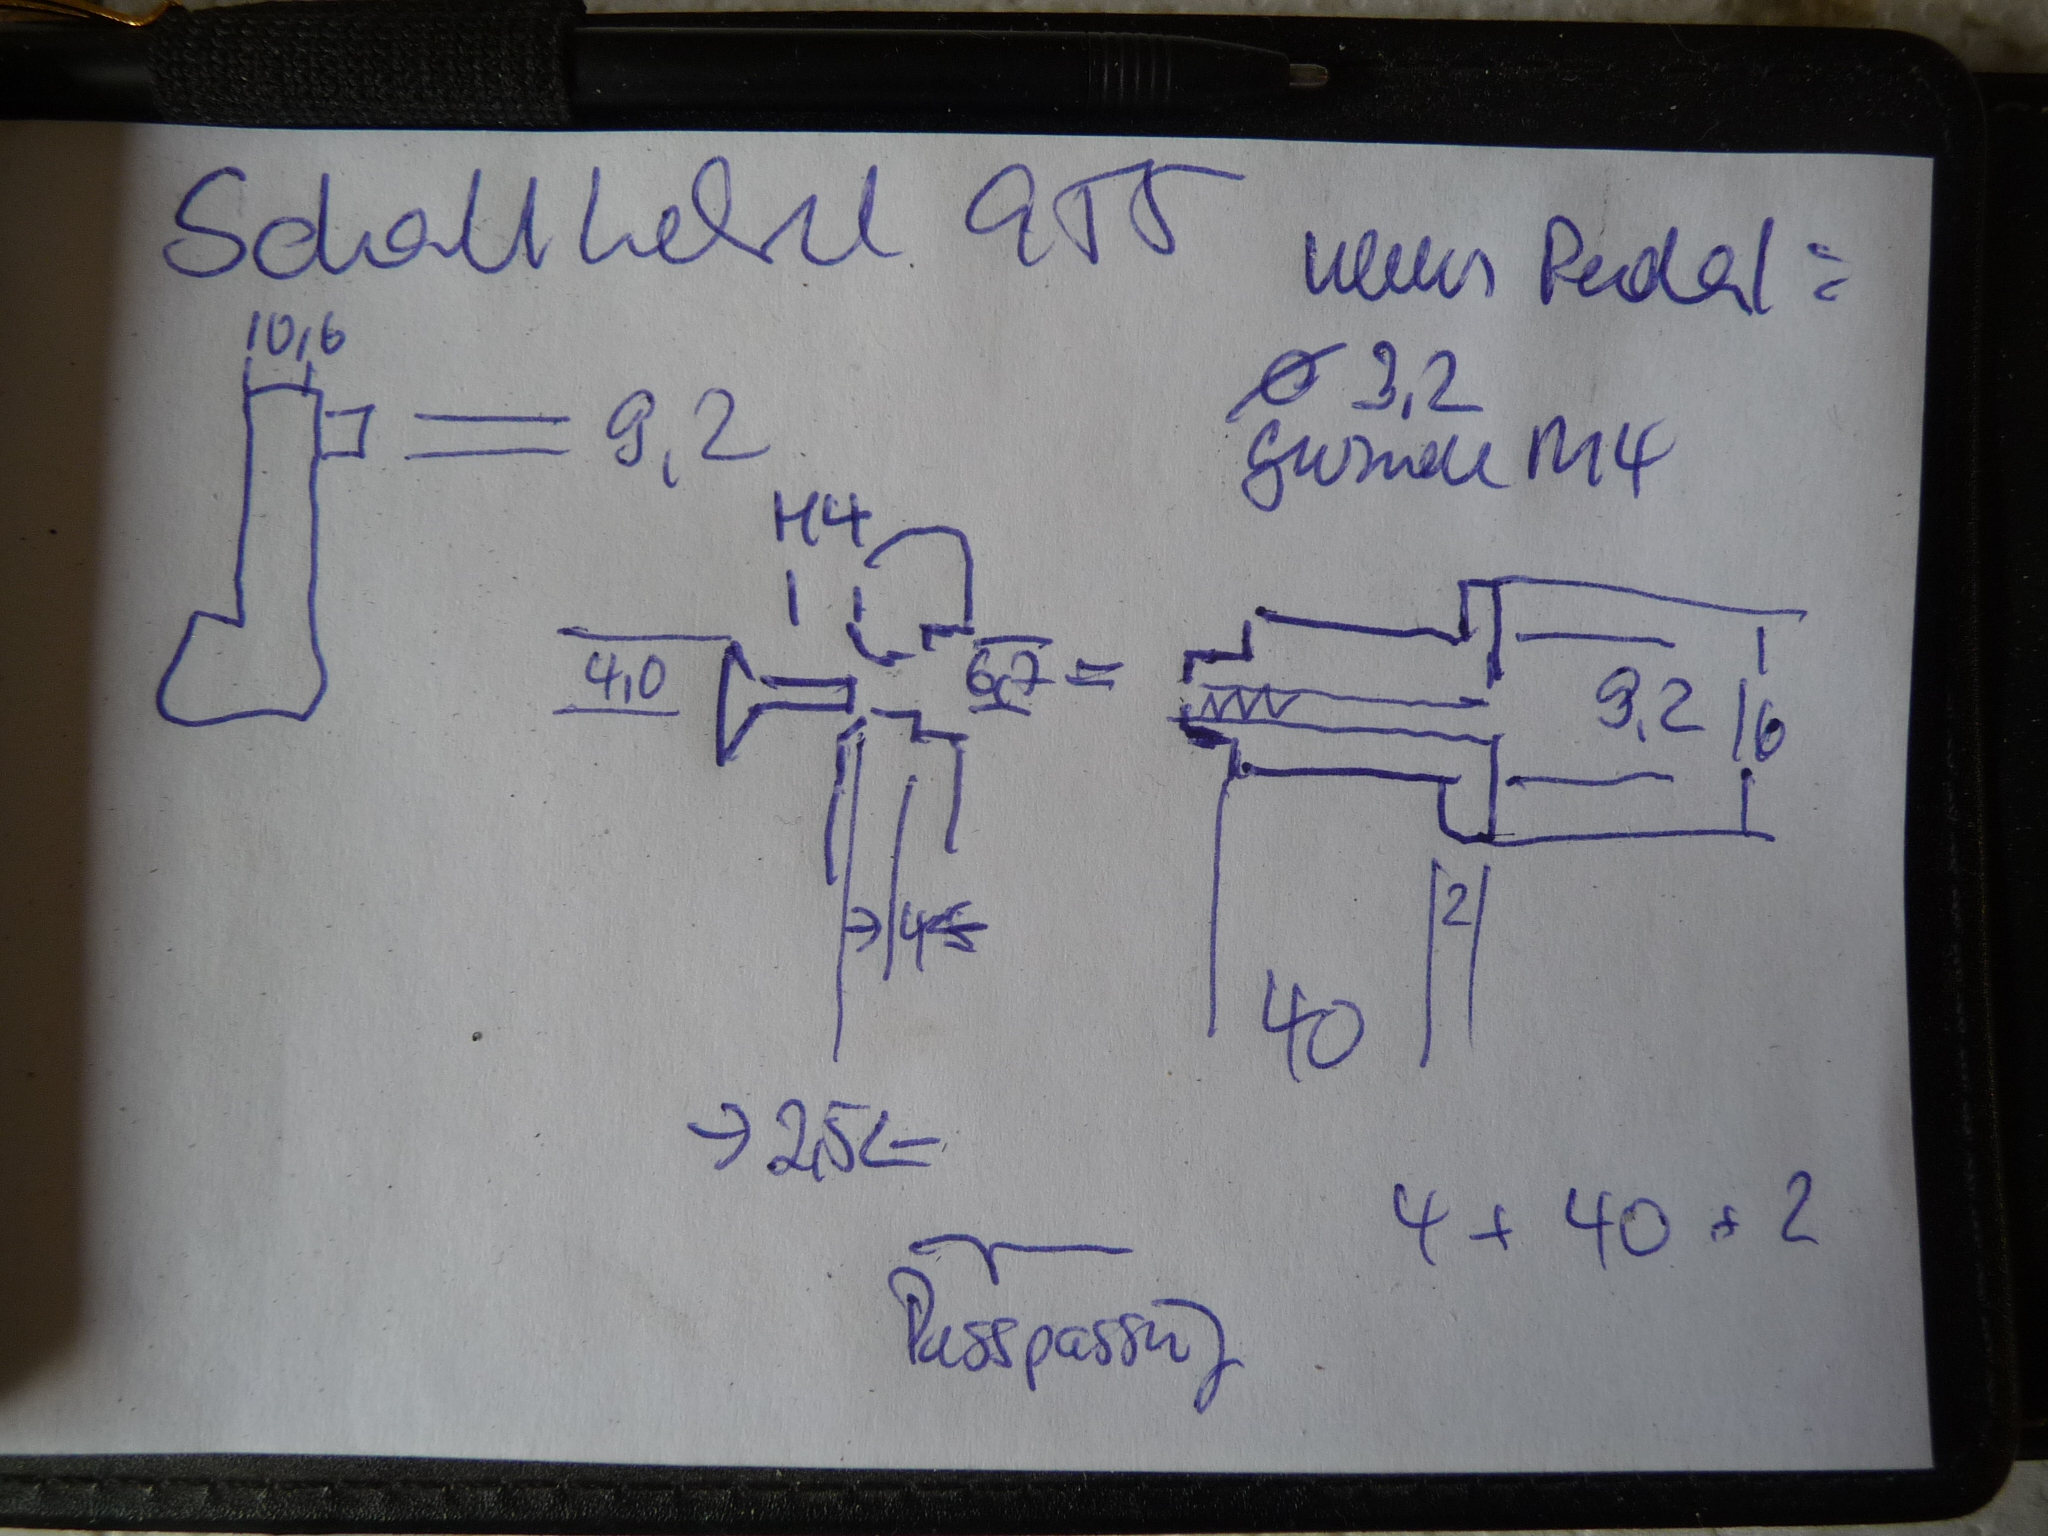 Schalthebel 955
neues Pedal =
10,6
ø 3,2
9,2
Gewinde M4
M4
4,0
6,7 =
9,2
16
→ 4 ←
2
40
→ 2,5 ←
4 + 40 + 2
Passpassung